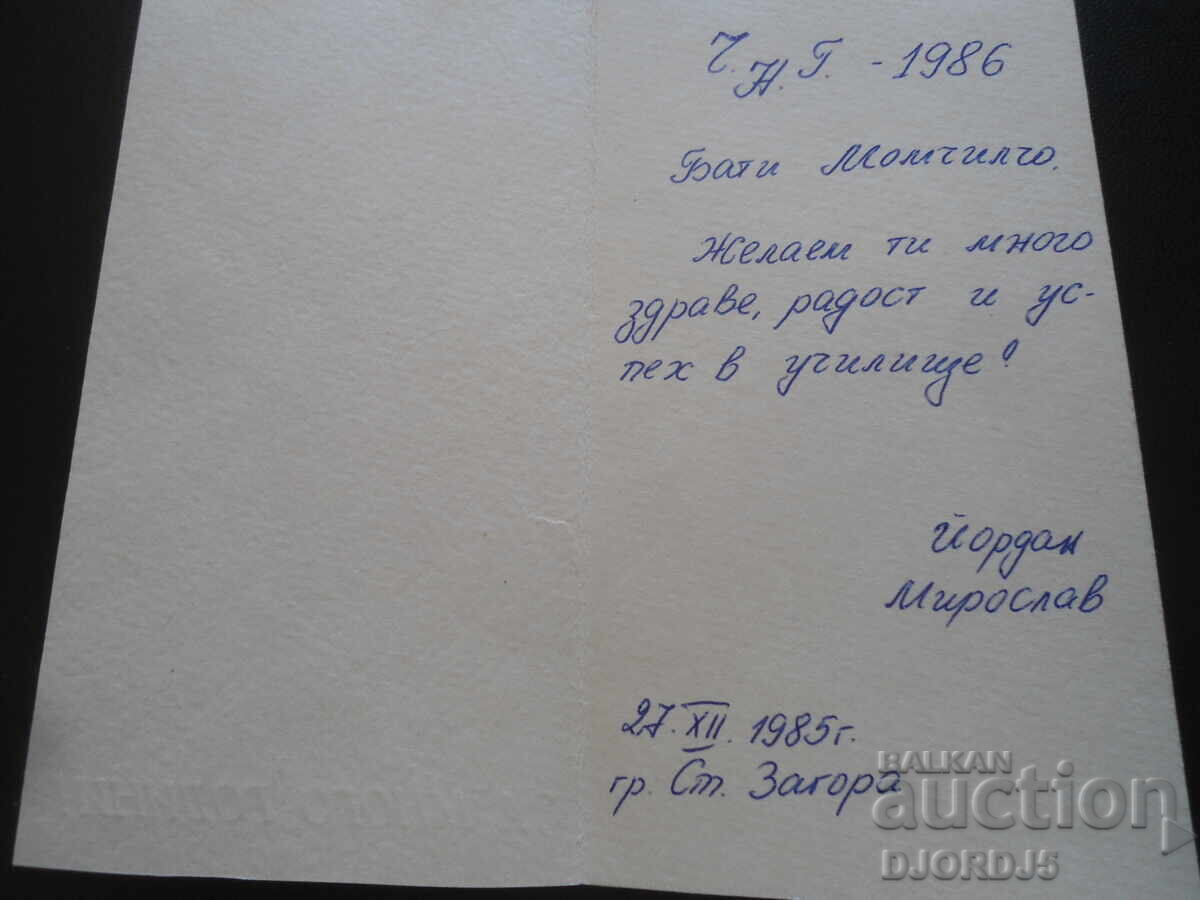 Ч.Н.Г. - 1986
Бати Момчилчо.
Желаем ти много
здраве, радост и ус-
пех в училище!
Йордан
Мирослав
27.XII.1985г.
гр. Ст. Загора
BALKAN
auction
DJORDJ5